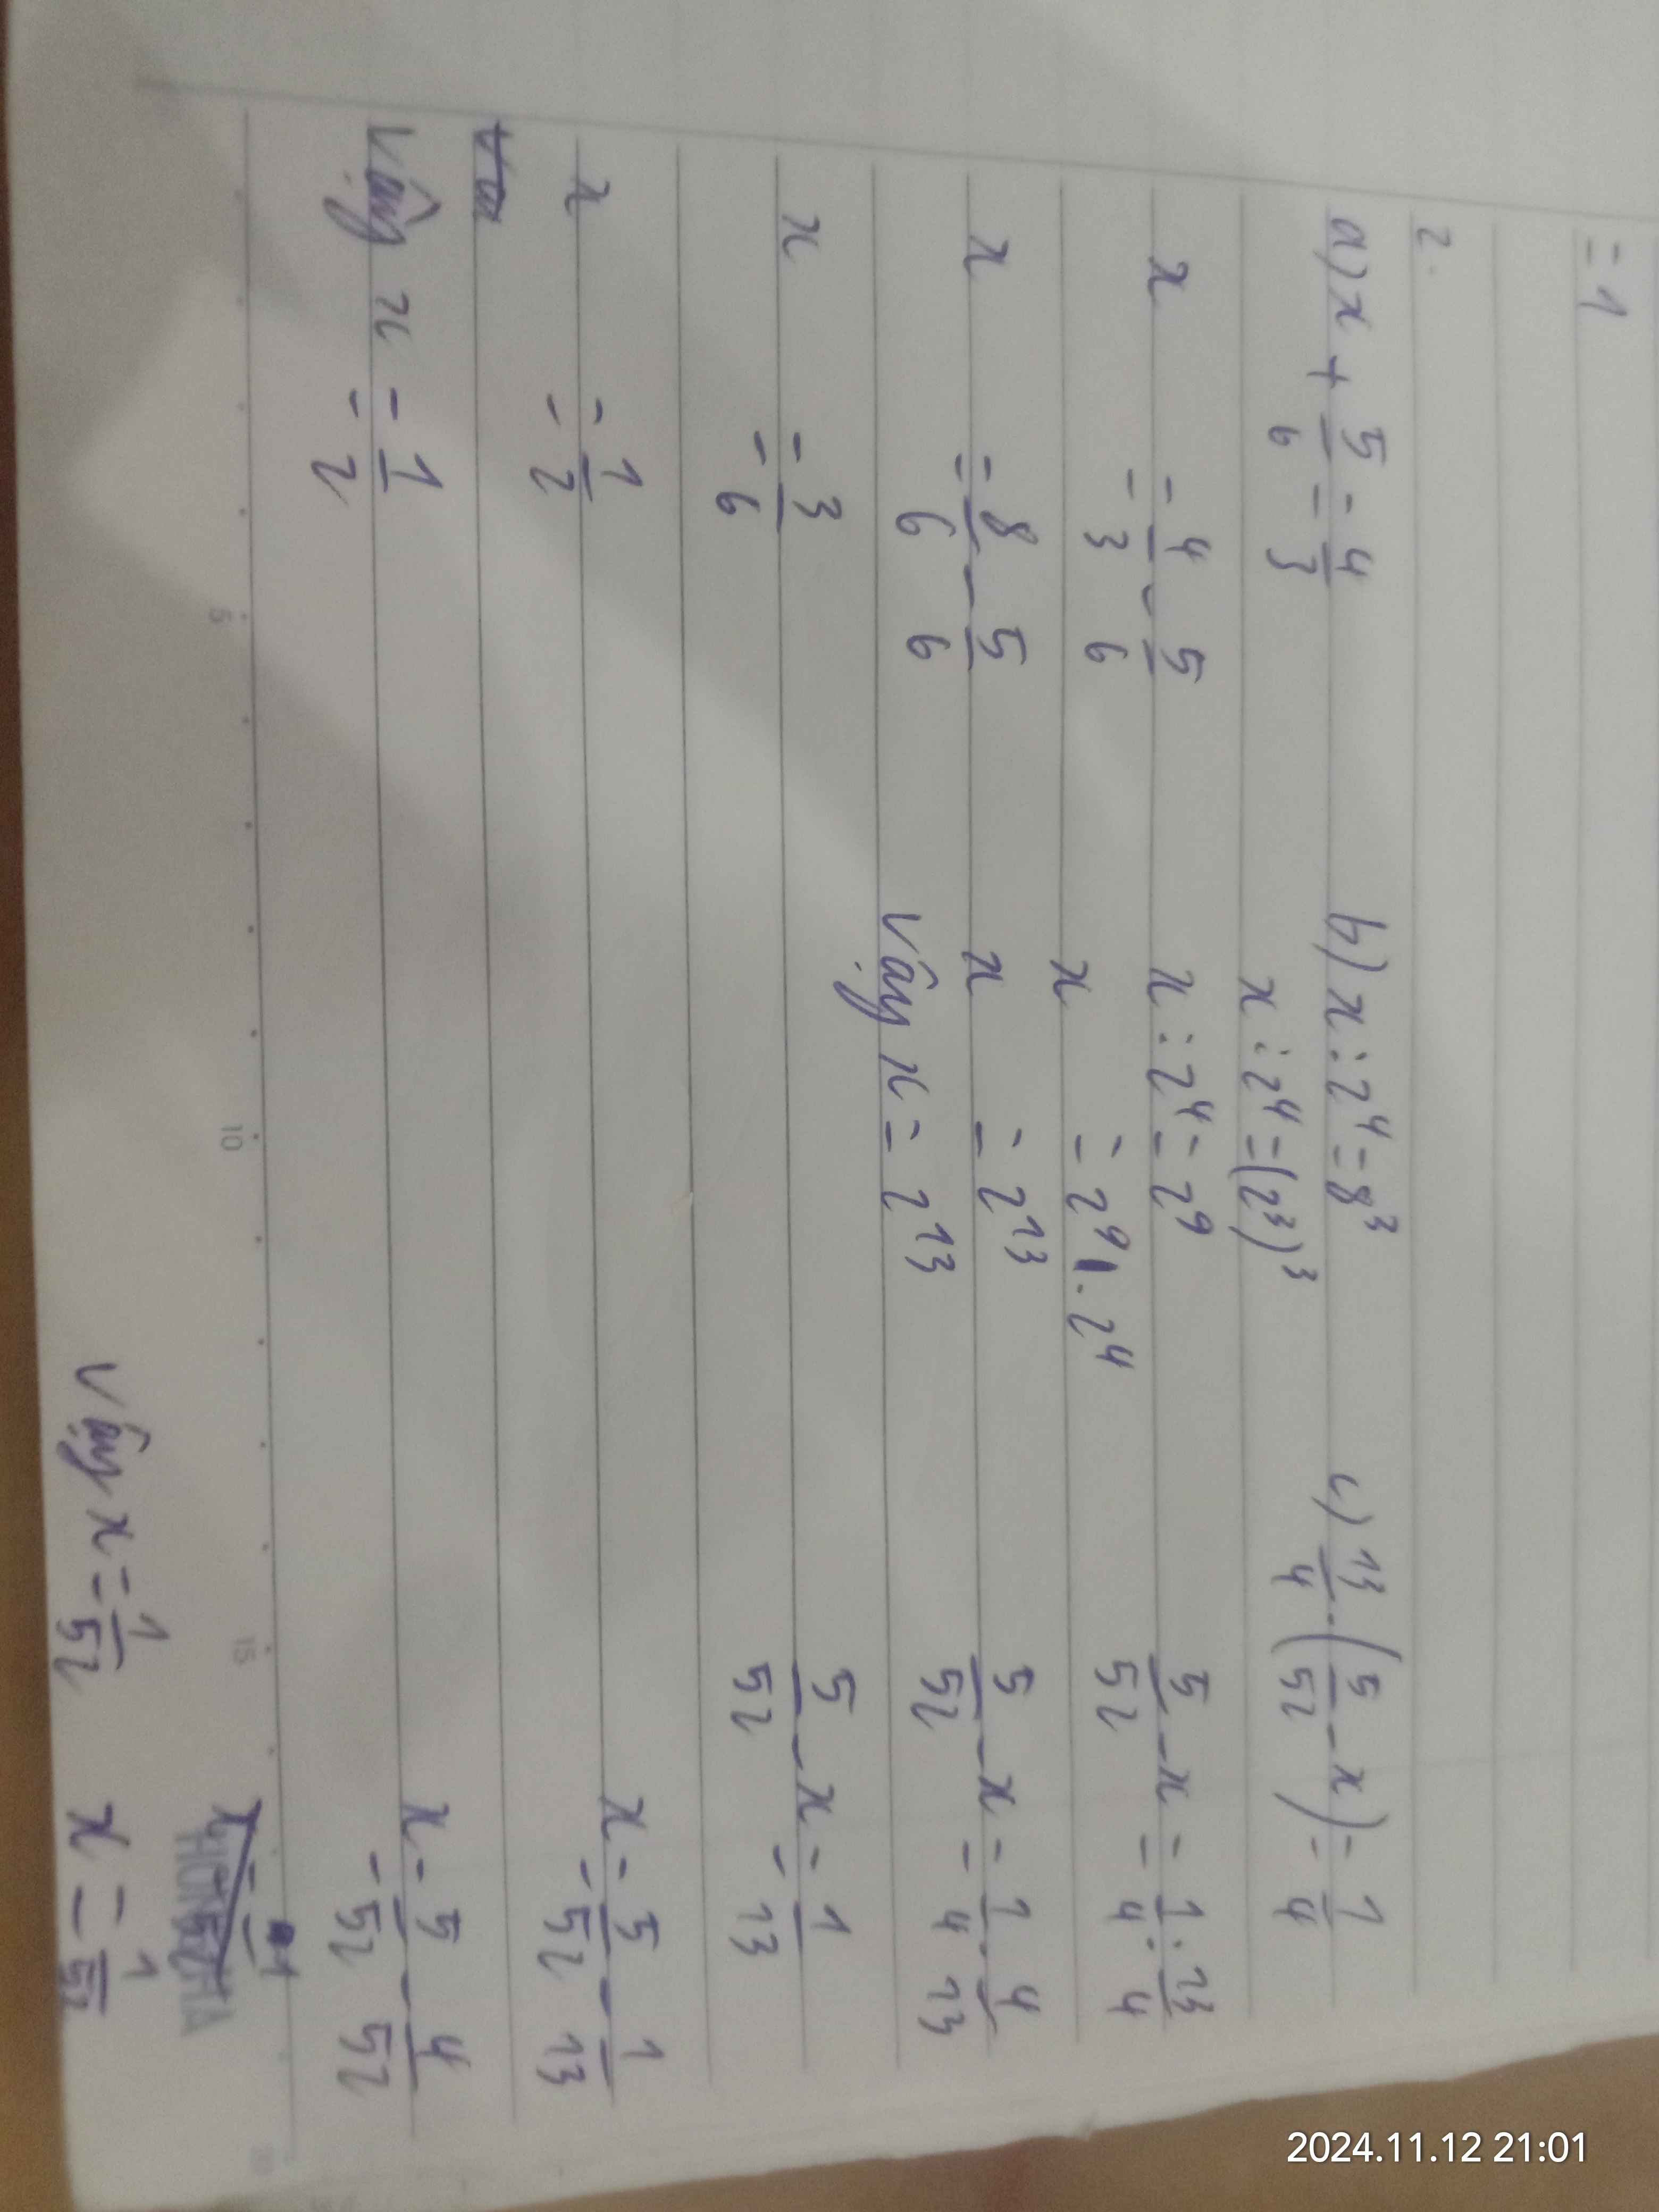 = 1
2.
a) x + 5/6 = 4/3
x = 4/3 - 5/6
x = 8/6 - 5/6
x = 3/6
x = 1/2
Vậy x = 1/2
b) x : 2⁴ = 8³
x : 2⁴ = (2³)³
x : 2⁴ = 2⁹
x = 2⁹ . 2⁴
x = 2¹³
Vậy x = 2¹³
c) 13/4 . (5/52 - x) = 1/4
5/52 - x = 1/4 : 13/4
5/52 - x = 1/4 . 4/13
5/52 - x = 1/13
x = 5/52 - 1/13
x = 5/52 - 4/52
x = 1/52
Vậy x = 1/52
5
10
15
2024.11.12 21:01